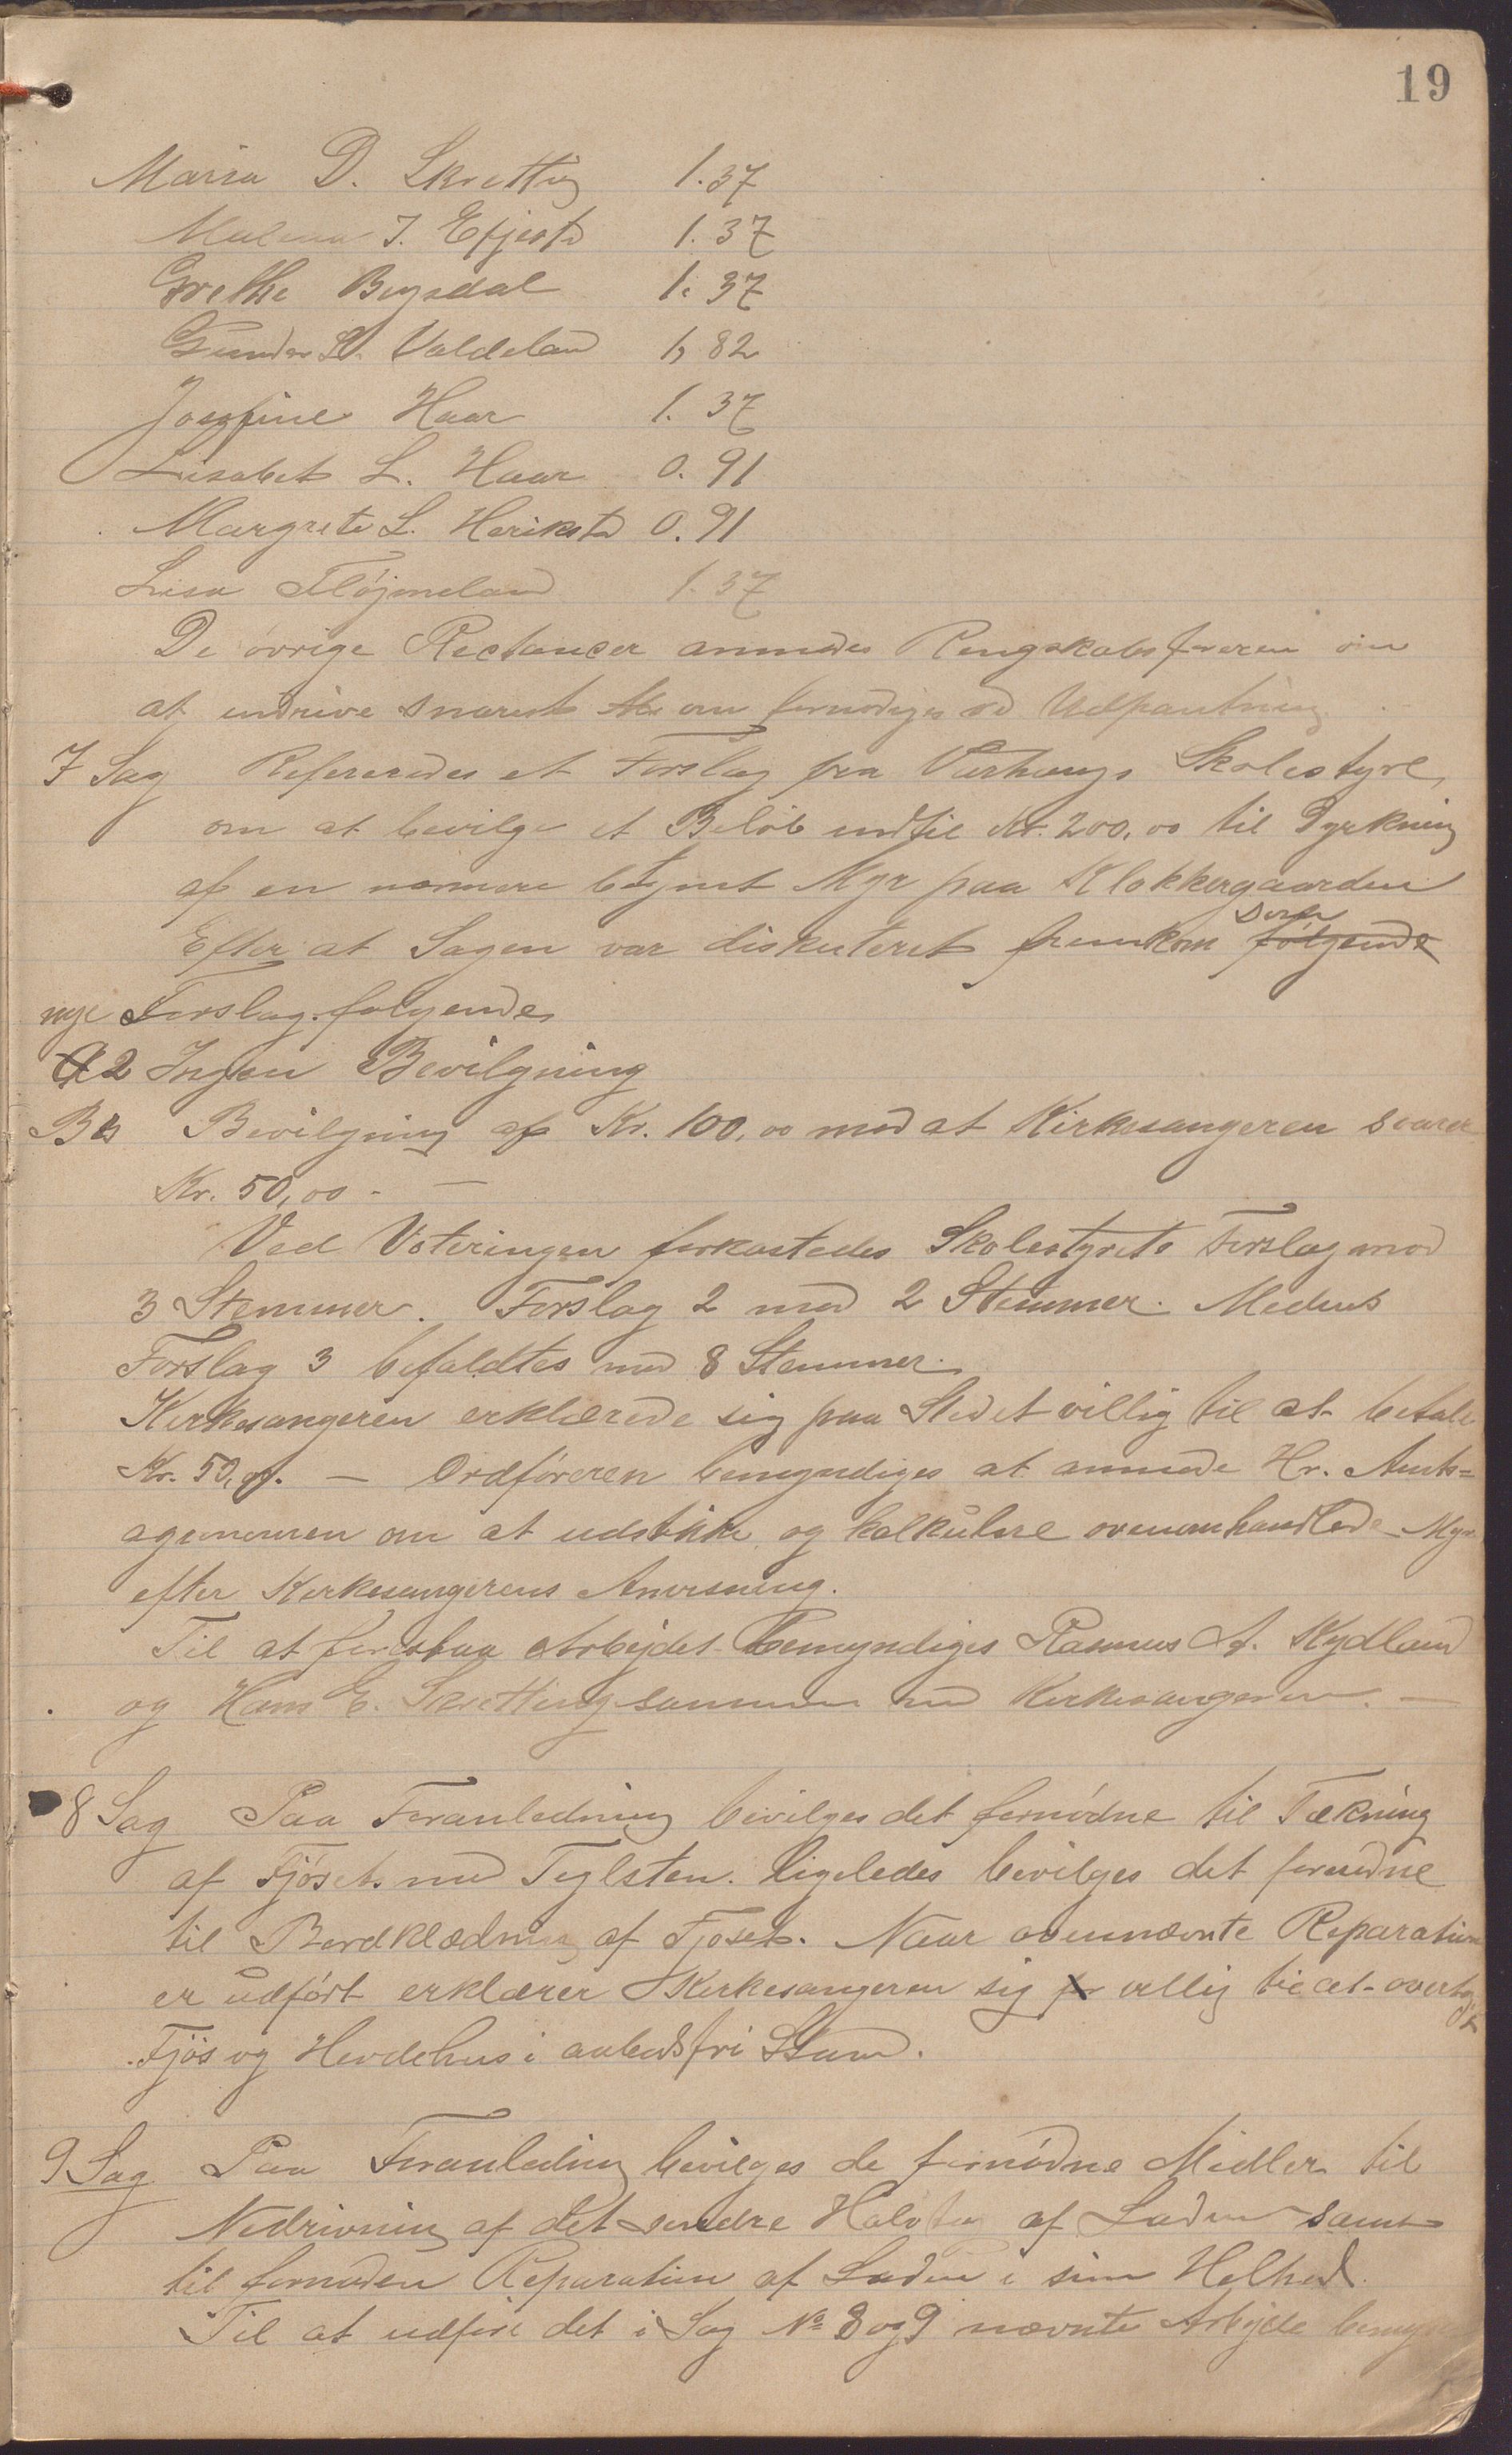 19
Maria D. Skretting 1.37
Malena J. Efjestd 1.37
Grethe Bugsdal 1.37
Gunder Valdeland 1,82
Josefine Haar 1.37
Lisabet L. Haar 0.91
Margrete L. Herikstd 0.91
Lisa Fløjmeland 1.37
De övrige Restancer anmodes Rengskabsføreren om
at inddrive snarest om fornødiges ved Udpantning
7 Sag Refereredes et Forslag fra Varhaugs Skolestyre,
om at bevilge et Beløb indtil Kr. 200,00 til Dyrkning
af en nærmere betgnet Myr paa Klokkergaarden
Efter at Sagen var diskuteret fremkom følgende
nye Forslag følgende
2 Ingen Bevilgning
B Bevilgning af Kr. 100,00 mod at Kirkesangeren svarer
Kr. 50,00 - —
Ved Voteringen forkastedes Skolestyrets Forslag mod
3 Stemmer. Forslag 2 med 2 Stemmer. Medens
Forslag 3 befaldtes med 8 Stemmer.
Kirkesangeren erklærede sig paa Stedet villig til at betale
Kr. 50,00. — Ordföreren bemyndiges at anmode Hr. Amts=
agronomen om at udstikke og kalkulere ovenomhandlede Myr
efter Kirkesangerens Anvisning.
Til at forestaa Arbejdet bemyndiges Rasmus A. Kydland
og Hans E. Skretting sammen med Kirkesangeren. —
8 Sag Paa Foranledning bevilges det fornödne til Tækning
af Fjöset med Teglsten. Ligeledes bevilges det fornødne
til Bordklædning af Fjoset. Naar ovennævnte Reparation
er udført erklærer Kirkesangeren sig villig til at overtage
Fjös og Hovdehus i aabodsfri Stand.
9 Sag Paa Foranledning bevilges de fornødne Midler til
Nedrivning af det søndre af Laden samt
til fornøden Reparation af Laden i sin Helhed.
Til at udføre det i Sag № 8 og 9 nævnte Arbejde